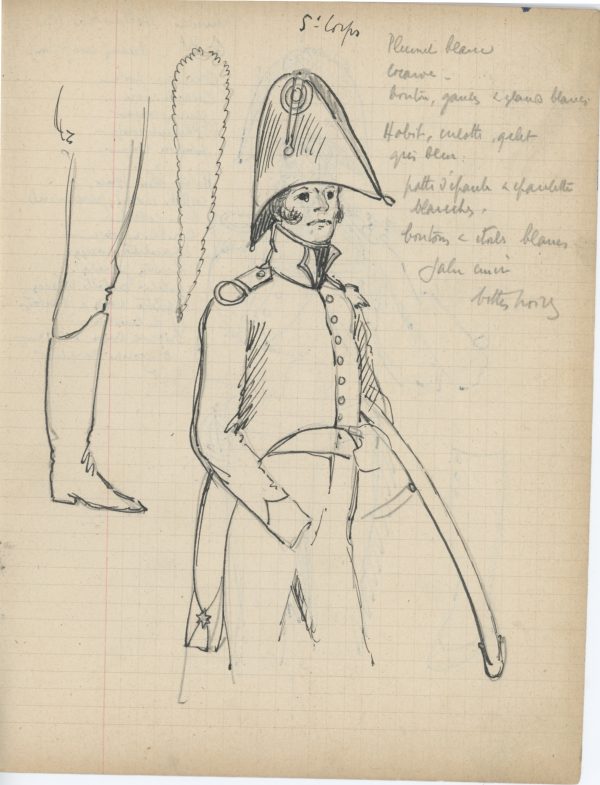 5e Corps
Plumet blanc
cocarde -
bouton, ganses & glands blancs
Habit, culotte, gilet
gris bleu.
patte d'épaule & épaulette
blanches.
boutons & étoiles blancs
Sabre cuir
bottes noires